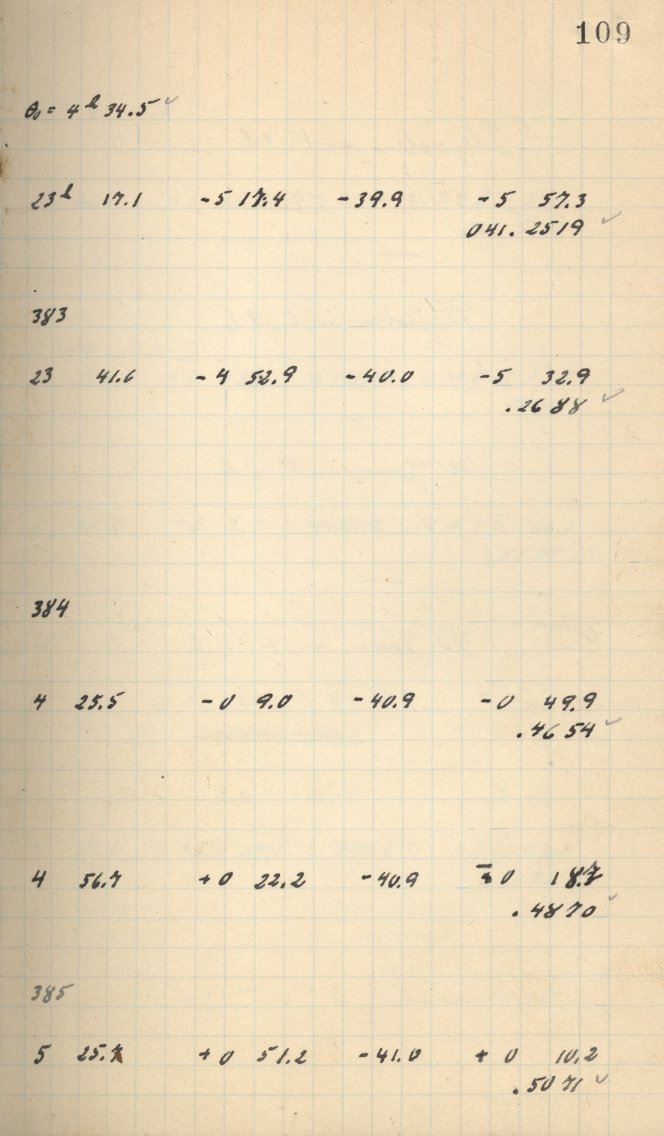 109
θ₀ = 4ʰ 34.5 ✓
23ʰ 17.1 -5 17.4 -39.9 -5 57.3
041.2519 ✓
383
23 41.6 -4 52.9 -40.0 -5 32.9
.2688 ✓
384
4 25.5 -0 9.0 -40.9 -0 49.9
.4654 ✓
4 56.7 +0 22.2 -40.9 -0 18.7
.4870 ✓
385
5 25.7 +0 51.2 -41.0 +0 10.2
.5071 ✓